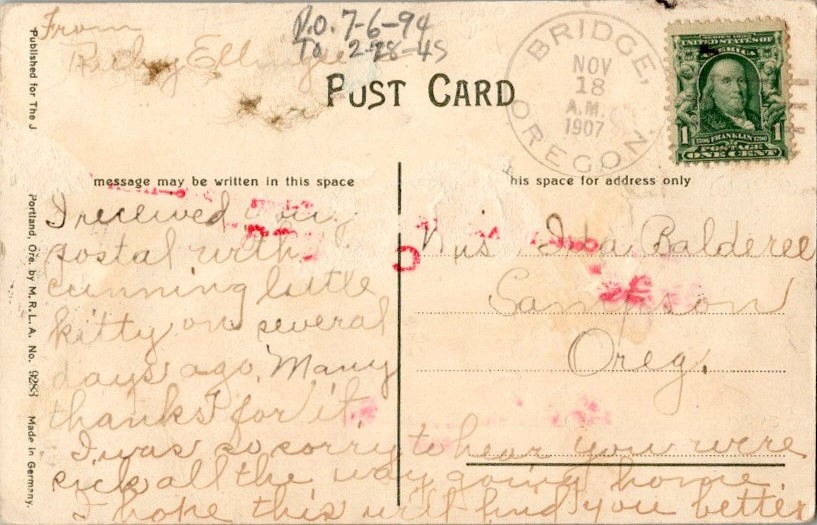 From
P.O. 7-6-94
To 2-28-45
POST CARD
BRIDGE, OREGON.
NOV
18
A.M.
1907
UNITED STATES OF
AMERICA
1 FRANKLIN 1
POSTAGE
ONE CENT
Published for The J
Portland, Ore. by M. R. L. A. No. 9283
Made in Germany.
message may be written in this space
his space for address only
I received your
postal with
cunning little
kitty on several
days ago. Many
thanks for it.
I was so sorry to hear you were
sick all the way going home.
I hope this will find you better
Miss Ida Balderee
Sampson
Oreg.